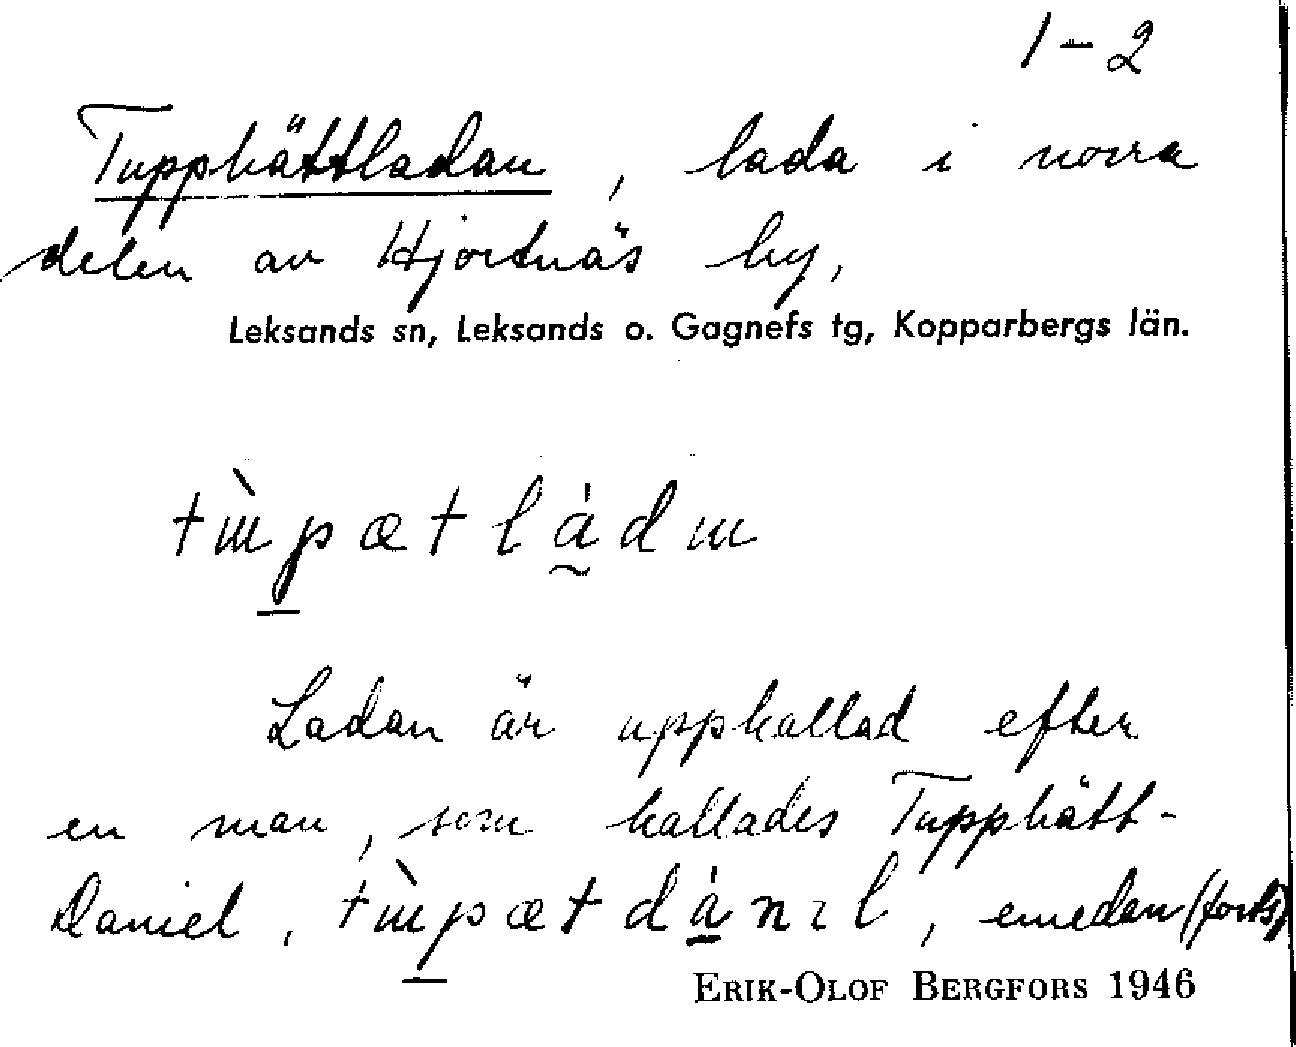 1-2
Tupphättladan, lada i norra
delen av Hjortnäs by,
Leksands sn, Leksands o. Gagnefs tg, Kopparbergs län.
tɯ̀p̲ætlȧ̰dɯ
Ladan är uppkallad efter
en man, som kallades Tupphätt-
Daniel, tɯ̀p̲ætdȧ̲nɩl, emedan (forts)
ERIK-OLOF BERGFORS 1946